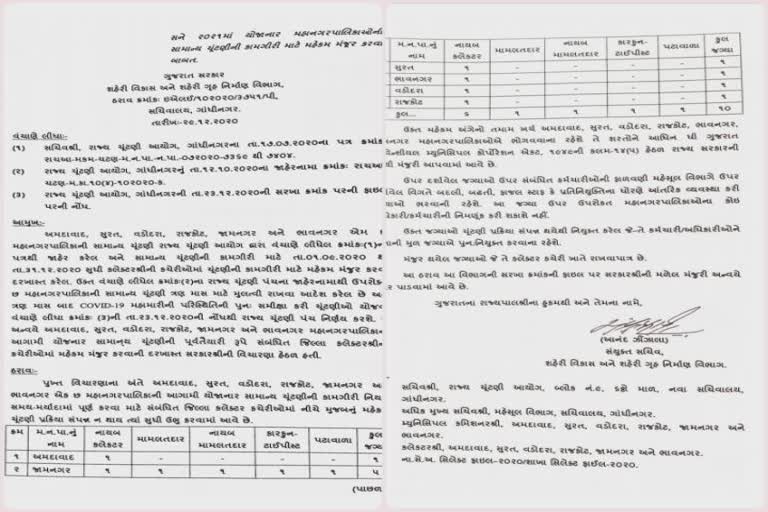 સને ૨૦૨૧માં યોજાનાર મહાનગરપાલિકાઓની
સામાન્ય ચૂંટણીની કામગીરી માટે મહેકમ મંજૂર કરવા
બાબત.
ગુજરાત સરકાર
શહેરી વિકાસ અને શહેરી ગૃહ નિર્માણ વિભાગ,
ઠરાવ ક્રમાંકઃ ઇએલઇ/૧૦૨૦૨૦/૩૭૫૧/પી,
સચિવાલય, ગાંધીનગર.
તારીખઃ-૨૯.૧૨.૨૦૨૦
વંચાણે લીધાઃ-
(૧) સચિવશ્રી, રાજ્ય ચૂંટણી આયોગ, ગાંધીનગરના તા.૧૭.૦૭.૨૦૨૦ના પત્ર ક્રમાંક
રાચઆ-મકમ-ચટણ-મ.ન.પા.-ન.પા.-૦૭૨૦૨૦-૭૩૬૯ થી ૭૪૦૪.
(૨) રાજ્ય ચૂંટણી આયોગ, ગાંધીનગરનું તા.૧૨.૧૦.૨૦૨૦ના જાહેરનામા ક્રમાંકઃ રાચઆ
ચટણ-મ.કા.૧૦(૪)-૧૦૨૦૨૦-ક.
(૩) રાજ્ય ચૂંટણી આયોગ, ગાંધીનગરની તા.૨૩.૧૨.૨૦૨૦ની સરખા ક્રમાંક પરની ફાઇલ
પરની નોંધ.
આમુખઃ-
અમદાવાદ, સુરત, વડોદરા, રાજકોટ, જામનગર અને ભાવનગર એમ છ
મહાનગરપાલિકાની સામાન્ય ચૂંટણી રાજ્ય ચૂંટણી આયોગ દ્વારા વંચાણે લીધેલ ક્રમાંકઃ(૧)ના
પત્રથી જાહેર કરેલ અને સામાન્ય ચૂંટણીની કામગીરી માટે તા.૦૧.૦૯.૨૦૨૦ થી
તા.૩૧.૧૨.૨૦૨૦ સુધી કલેક્ટરશ્રીની કચેરીઓમાં ચૂંટણીની કામગીરી માટે મહેકમ મંજૂર કરવા
દરખાસ્ત કરેલ. ઉક્ત વંચાણે લીધેલ ક્રમાંકઃ(૨)ના રાજ્ય ચૂંટણી પંચના જાહેરનામાથી ઉપરોક્ત
છ મહાનગરપાલિકાની સામાન્ય ચૂંટણી ત્રણ માસ માટે મુલત્વી રાખવા આદેશ કરેલ છે અને
ત્રણ માસ બાદ COVID-19 મહામારીની પરિસ્થિતિની પુનઃ સમીક્ષા કરી ચૂંટણીઓ યોજવા
વંચાણે લીધા ક્રમાંકઃ (૩)ની તા.૨૩.૧૨.૨૦૨૦ની નોંધથી રાજ્ય ચૂંટણી પંચ નિર્ણય કરશે.
અન્વયે અમદાવાદ, સુરત, વડોદરા, રાજકોટ, જામનગર અને ભાવનગર મહાનગરપાલિકાની
આગામી યોજનાર સામાન્ય ચૂંટણીની પૂર્વતૈયારી રૂપે સંબંધિત જિલ્લા કલેક્ટરશ્રીની
કચેરીઓમાં મહેકમ મંજૂર કરવાની દરખાસ્ત સરકારશ્રીની વિચારણા હેઠળ હતી.
ઠરાવઃ-
પુખ્ત વિચારણાના અંતે અમદાવાદ, સુરત, વડોદરા, રાજકોટ, જામનગર અને
ભાવનગર એક છ મહાનગરપાલિકાની આગામી યોજાનાર સામાન્ય ચૂંટણીની કામગીરી નિયત
સમય-મર્યાદામાં પૂર્ણ કરવા માટે સંબંધિત જિલ્લા કલેક્ટર કચેરીઓમાં નીચે મુજબનું મહેકમ
ચૂંટણી પ્રક્રિયા સંપન્ન ન થાય ત્યાં સુધી ઉભુ કરવામાં આવે છે.
ક્રમ મ.ન.પા.નું નામ નાયબ કલેક્ટર મામલતદાર નાયબ મામલતદાર કારકુન-ટાઈપીસ્ટ પટાવાળા કુલ જગ્યા
૧ અમદાવાદ ૧ - - - - ૧
૨ જામનગર ૧ ૧ ૧ ૧ ૧ ૫
(પાછળ
મ.ન.પા.નું નામ નાયબ કલેક્ટર મામલતદાર નાયબ મામલતદાર કારકુન-ટાઈપીસ્ટ પટાવાળા કુલ જગ્યા
સુરત ૧ - - - - ૧
ભાવનગર ૧ - - - - ૧
વડોદરા ૧ - - - - ૧
રાજકોટ ૧ - - - - ૧
કુલ... ૬ ૧ ૧ ૧ ૧ ૧૦
ઉક્ત મહેકમ અંગેનો તમામ ખર્ચ અમદાવાદ, સુરત, વડોદરા, રાજકોટ, ભાવનગર,
નગર મહાનગરપાલિકાઓએ ભોગવવાના રહેશે તે શરતોને આધિન ધી ગુજરાત
ન્શીયલ મ્યુનિસિપલ કોર્પોરેશન એક્ટ, ૧૯૪૯ની કલમ-૧૪(૫) હેઠળ રાજ્ય સરકારની
થી મંજૂરી આપવામાં આવે છે.
ઉપર દર્શાવેલ જગ્યાઓ ઉપર સંબંધિત કર્મચારીઓની ફાળવણી મહેસૂલ વિભાગે ઉપર
વેલ વિગતે બદલી, બઢતી, ફાજલ સ્ટાફ કે પ્રતિનિયુક્તિના ધોરણે આંતરિક વ્યવસ્થા કરી
ાઓ ભરવાની રહેશે. આ જગ્યા ઉપર ઉપરોક્ત મહાનગરપાલિકાઓના કોઇ
કારી/કર્મચારીની નિમણૂંક કરી શકાશે નહીં.
ઉક્ત જગ્યાઓ ચૂંટણી પ્રક્રિયા સંપન્ન થયેથી નિયુક્ત કરેલ જે-તે કર્મચારી/અધિકારીઓને
ની મુળ જગ્યાએ પુનઃનિયુક્ત કરવાના રહેશે.
મંજૂર થયેલ જગ્યાઓ જે તે કલેક્ટર કચેરી ખાતે રાખવાપાત્ર છે.
આ ઠરાવ આ વિભાગની સરખા ક્રમાંકની ફાઇલ પર સરકારશ્રીની મળેલ મંજૂરી અન્વયે
ર પાડવામાં આવે છે.
ગુજરાતના રાજ્યપાલશ્રીના હુકમથી અને તેમના નામે,
(આનંદ ઝીંઝાલા)
સંયુક્ત સચિવ,
શહેરી વિકાસ અને શહેરી ગૃહ નિર્માણ વિભાગ.
સચિવશ્રી, રાજ્ય ચૂંટણી આયોગ, બ્લોક નં.૯, ૬ઠ્ઠો માળ, નવા સચિવાલય,
ગાંધીનગર.
અધિક મુખ્ય સચિવશ્રી, મહેસૂલ વિભાગ, સચિવાલય, ગાંધીનગર.
મ્યુનિસિપલ કમિશનરશ્રી, અમદાવાદ, સુરત, વડોદરા, રાજકોટ, જામનગર અને
ભાવનગર.
કલેક્ટરશ્રી, અમદાવાદ, સુરત, વડોદરા, રાજકોટ, જામનગર અને ભાવનગર.
ના.સે.અ. સિલેક્ટ ફાઇલ-૨૦૨૦/શાખા સિલેક્ટ ફાઇલ-૨૦૨૦.